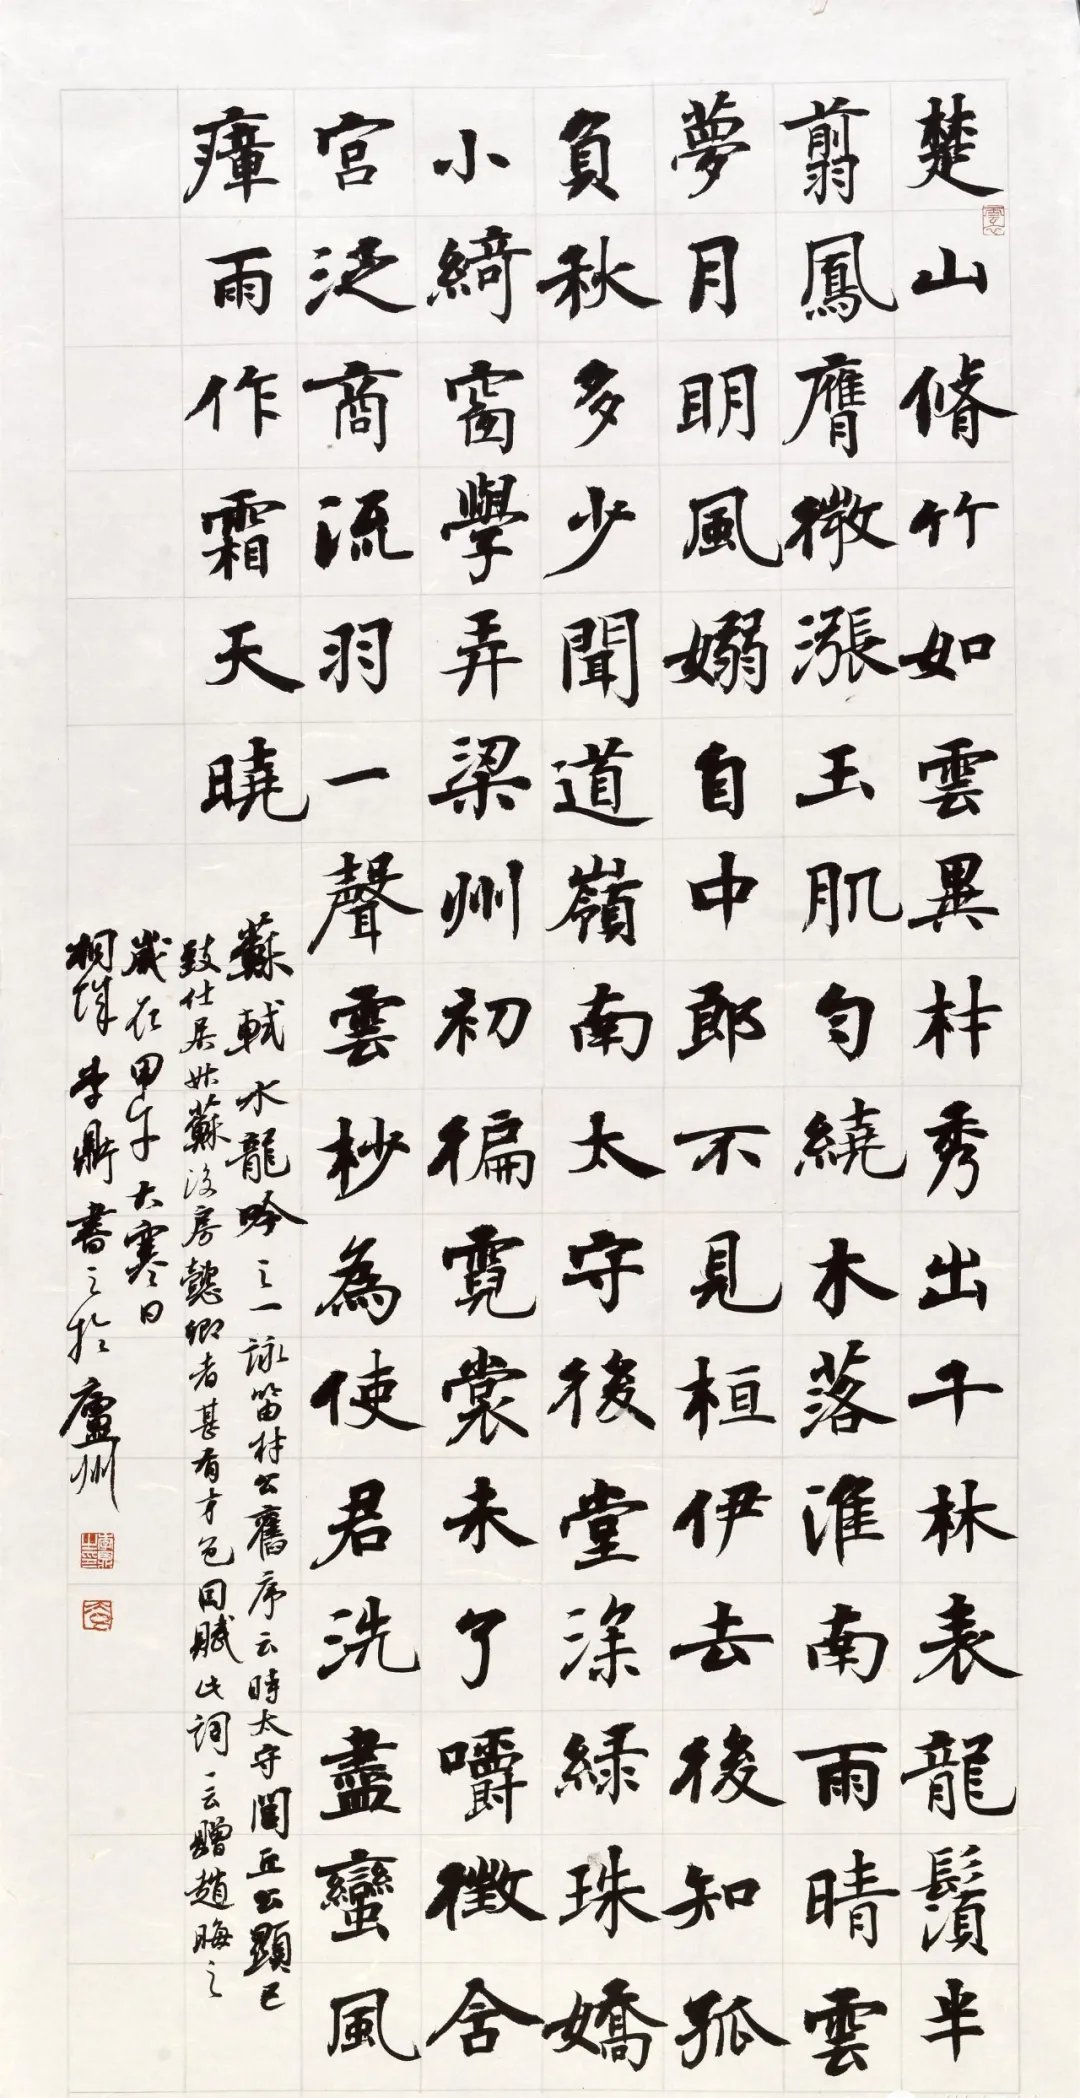 楚山脩竹如雲異材秀出千林表龍鬚半
翦鳳膺微漲玉肌勻繞木落淮南雨晴雲
夢月明風嫋自中郎不見桓伊去後知孤
負秋多少聞道嶺南太守後堂深綠珠嬌
小綺窗學弄梁州初徧霓裳未了嚼徵含
宮泛商流羽一聲雲杪為使君洗盡蠻風
瘴雨作霜天曉
蘇軾水龍吟之一詠笛材公舊序云時太守閭丘公顯已
致仕居姑蘇後房懿卿者甚有才色因賦此詞一云贈趙晦之
歲在甲午大寒日
桐城李鼎書之於廬州